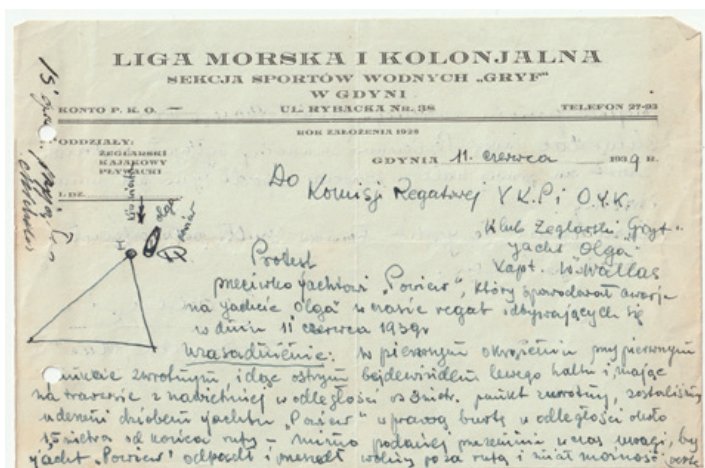 LIGA MORSKA I KOLONJALNA
SEKCJA SPORTÓW WODNYCH „GRYF”
W GDYNI
KONTO P. K. O. — UL. RYBACKA Nr. 38 TELEFON 27-93
ROK ZAŁOŻENIA 1928
ODDZIAŁY:
ŻEGLARSKI
KAJAKOWY
PŁYWACKI
GDYNIA 11. czerwca 1939 R.
L. DZ.
Do
Komisji Regatowej Y.K.P. i O.Y.K.
Klub Żeglarski „Gryf”
jacht „Olga”
Kapt. W. Wallas
Olga
Powiew
Protest
przeciwko jachtowi „Powiew”, który spowodował awarję
na jachcie „Olga” w czasie regat odbywających się
w dniu 11 czerwca 1939r
Uzasadnienie: w pierwszym okrążeniu przy pierwszym
znaku zwrotnym, idąc ostrym bejdewindem lewego halsu i mając
na trawersie z nawietrznej w odległości 3 mtr. punkt zwrotny, zostaliśmy
uderzeni dziobem jachtu „Powiew” w prawą burtę w odległości około
1,5 metra od końca rufy – mimo podanej przezemnie w czas uwagi, by
jacht „Powiew” odpadł i przeszedł wolny poza rufą i miał możność